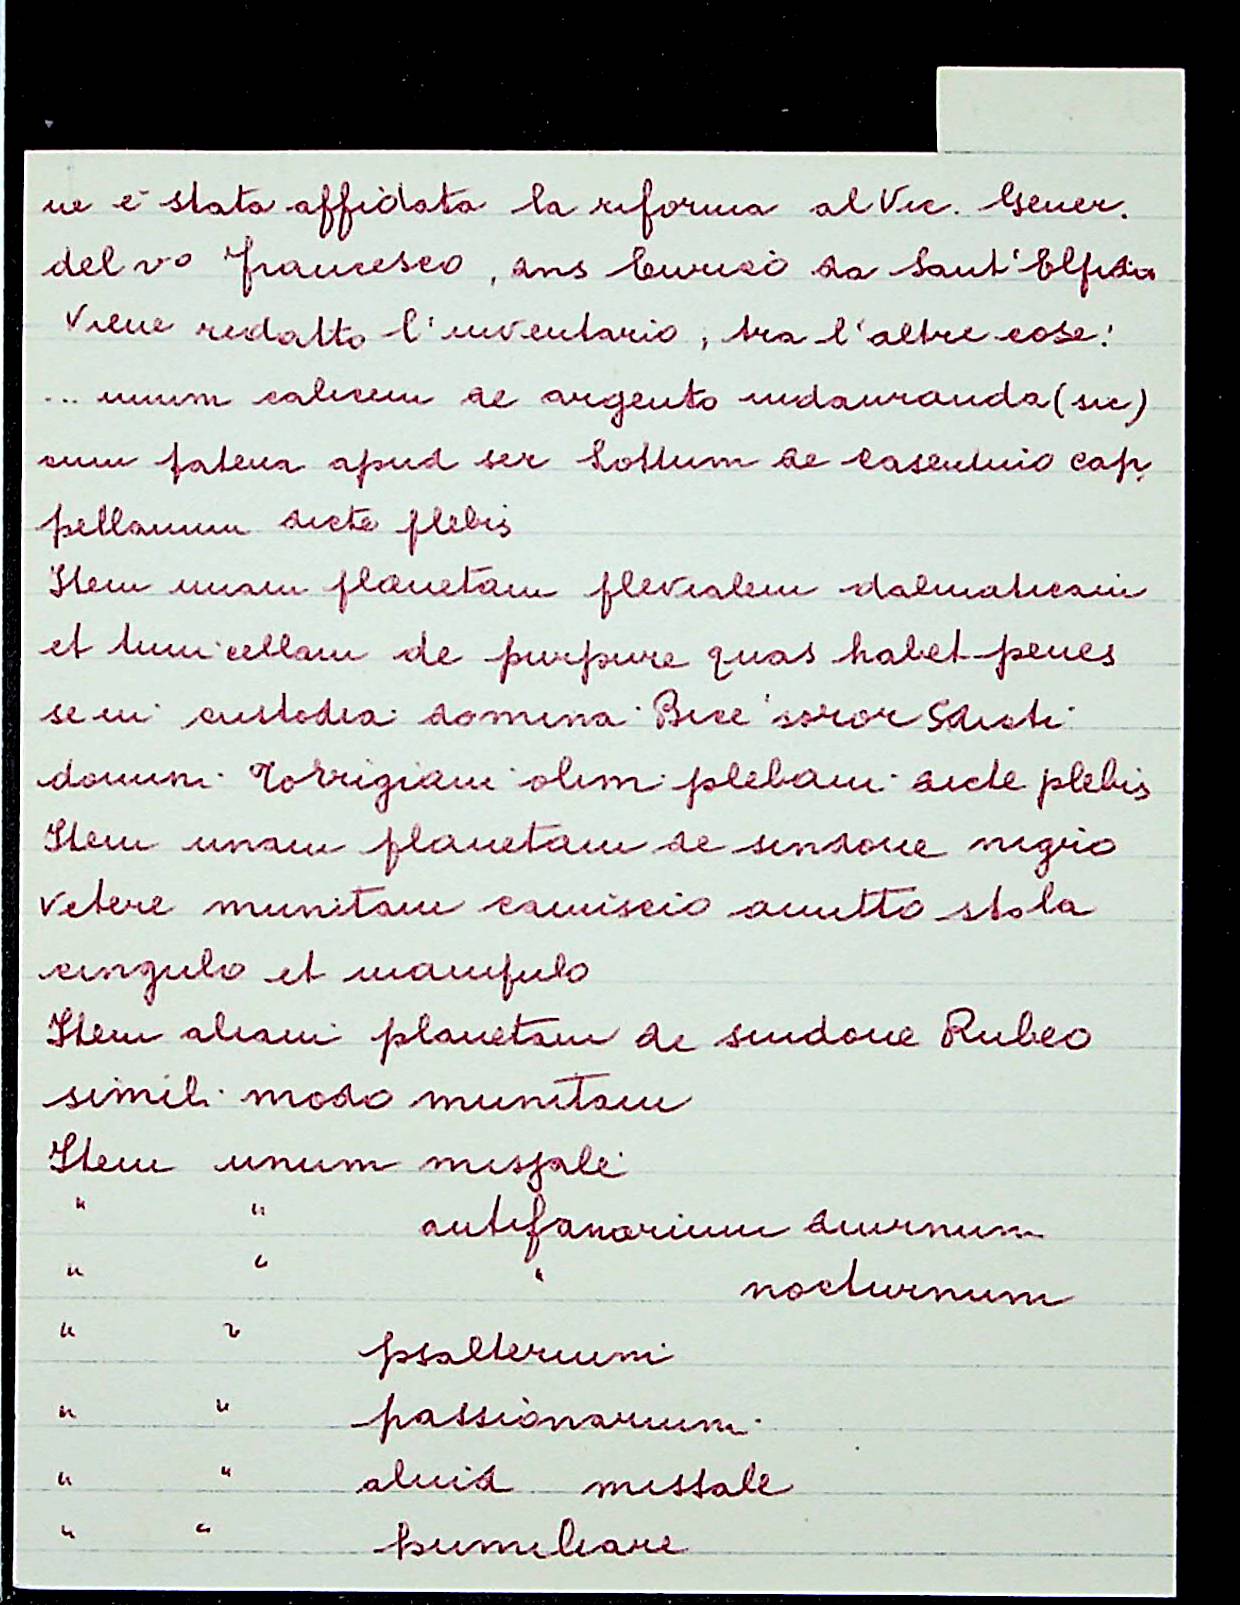 ne è stata affidata la riforma al Vic. Gener.
del v° Francesco, dns Enrico da Sant'Elpidio
Viene redatto l'inventario, tra l'altre cose:
... unum calicem de argento indauranda (sic)
cum patena apud ser Sottum de Casentino cap
pellanum dicte plebis
Item unam planetam plevialem dalmaticam
et tunicellam de purpure quas habet penes
se in custodia domina Bice soror
domini Torrigiani olim plebani dicte plebis
Item unam planetam de sindone nigro
vetere munitam camiscio amitto stola
cingulo et manipulo
Item aliam planetam de sindone Rubeo
simili modo munitam
Item unum missale
" " antifanarium diurnum
" " " nocturnum
" " psalterium
" " passionarium
" " aliud missale
" " humiliare